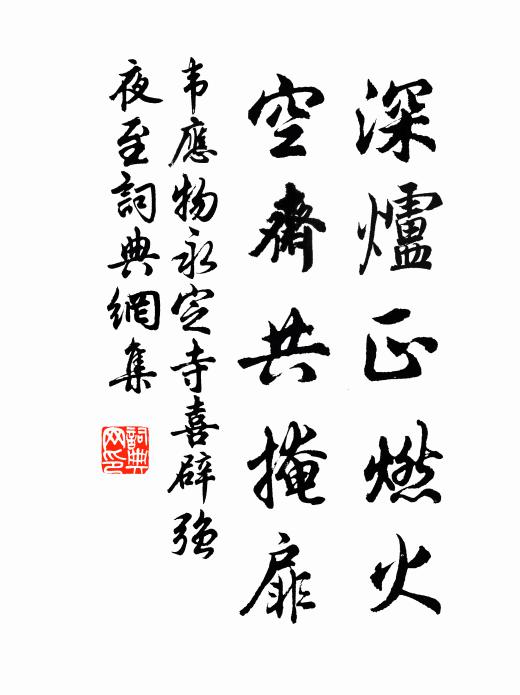 深爐正燃火
空齋共掩扉
韦應物永定寺喜辟强
夜至詞典網集
詞典网印